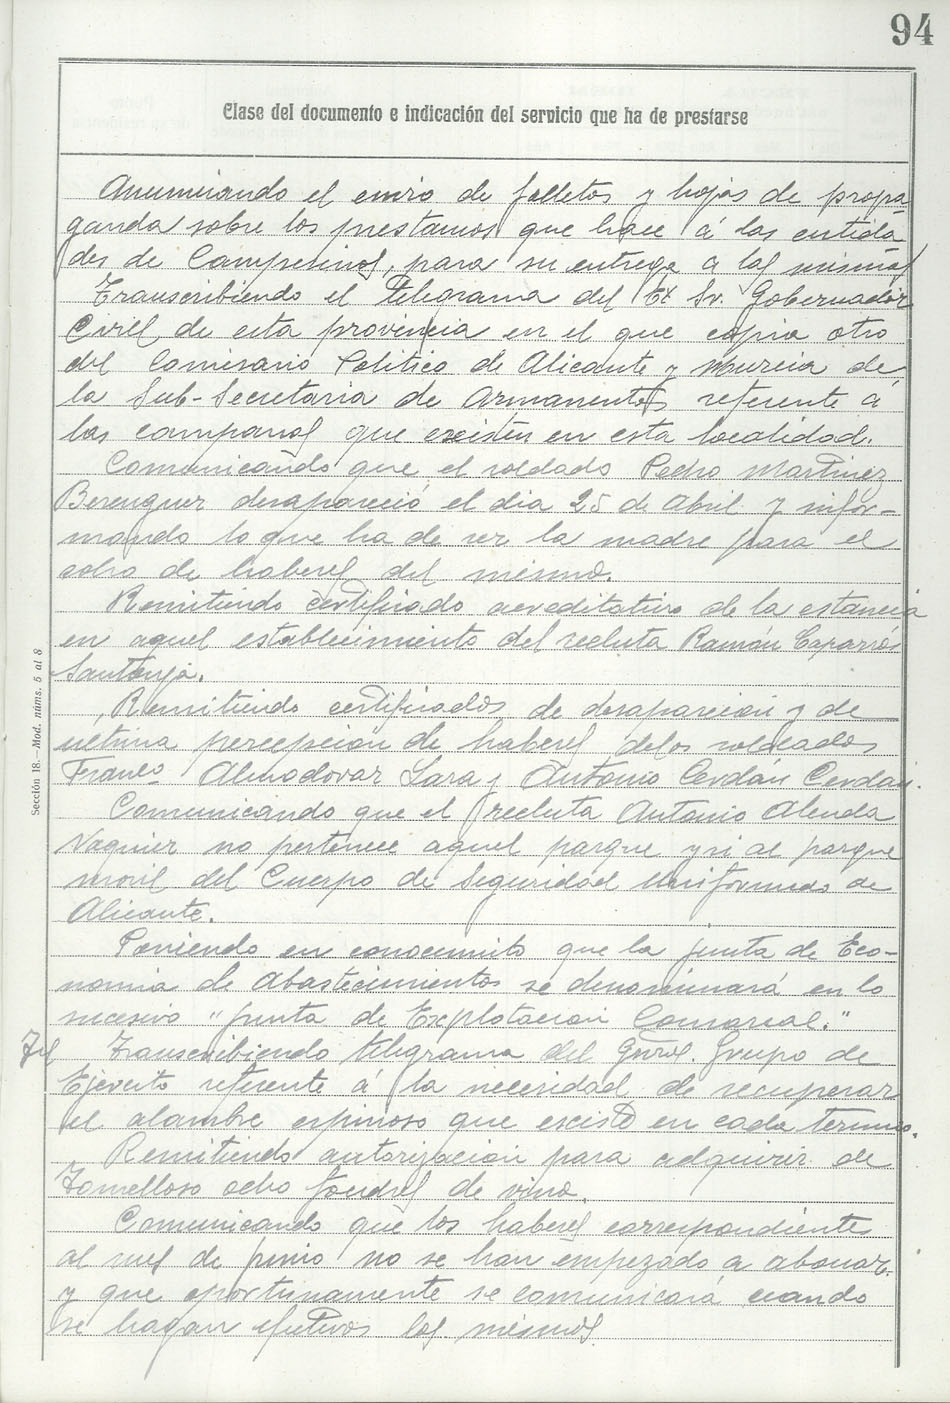 94
Clase del documento e indicación del servicio que ha de prestarse
Anunciando el envio de folletos y hojas de propa-
ganda sobre los prestamos que hace á las entida
des de Campesinos, para su entrega a las mismas
Transcribiendo el telegrama del Ex Sr. Gobernador
Civil de esta provincia en el que copia otro
del Comisario Politico de Alicante y Murcia de
la Sub-Secretaria de Armamentos referente a
las campanas que existen en esta localidad.
Comunicando que el soldado Pedro Martinez
Berenguer desapareció el dia 25 de Abril y infor-
mando lo que ha de ser la madre para el
cobro de haberes del mismo.
Remitiendo certificado acreditativo de la estancia
en aquel establecimiento del recluta Ramón Caparrós
Santonja.
Remitiendo certificados de desaparición y de
ultima percepción de haberes delos soldados
Franco Almodovar Lara y Antonio Cerdán Cerdan.
Comunicando que el recluta Antonio Alenda
no pertenece aquel parque y si al parque
movil del Cuerpo de Seguridad Uniformado de
Alicante.
Poniendo en conocimito que la junta de Eco-
nomia de Abastecimientos se denominará en lo
sucesivo "Junta de Explotación Comarcal."
Transcribiendo telegrama del Gral. Grupo de
Ejercito referente á la necesidad de recuperar
el alambre espinoso que existe en cada termino.
Remitiendo autorización para adquirir de
Tomelloso ocho foudres de vino.
Comunicando que los haberes correspondientes
al mes de junio no se han empezado a abonar.
y que oportunamente se comunicará cuando
se hagan efectivos los mismos.
Sección 18.—Mod. núms. 5 al 8